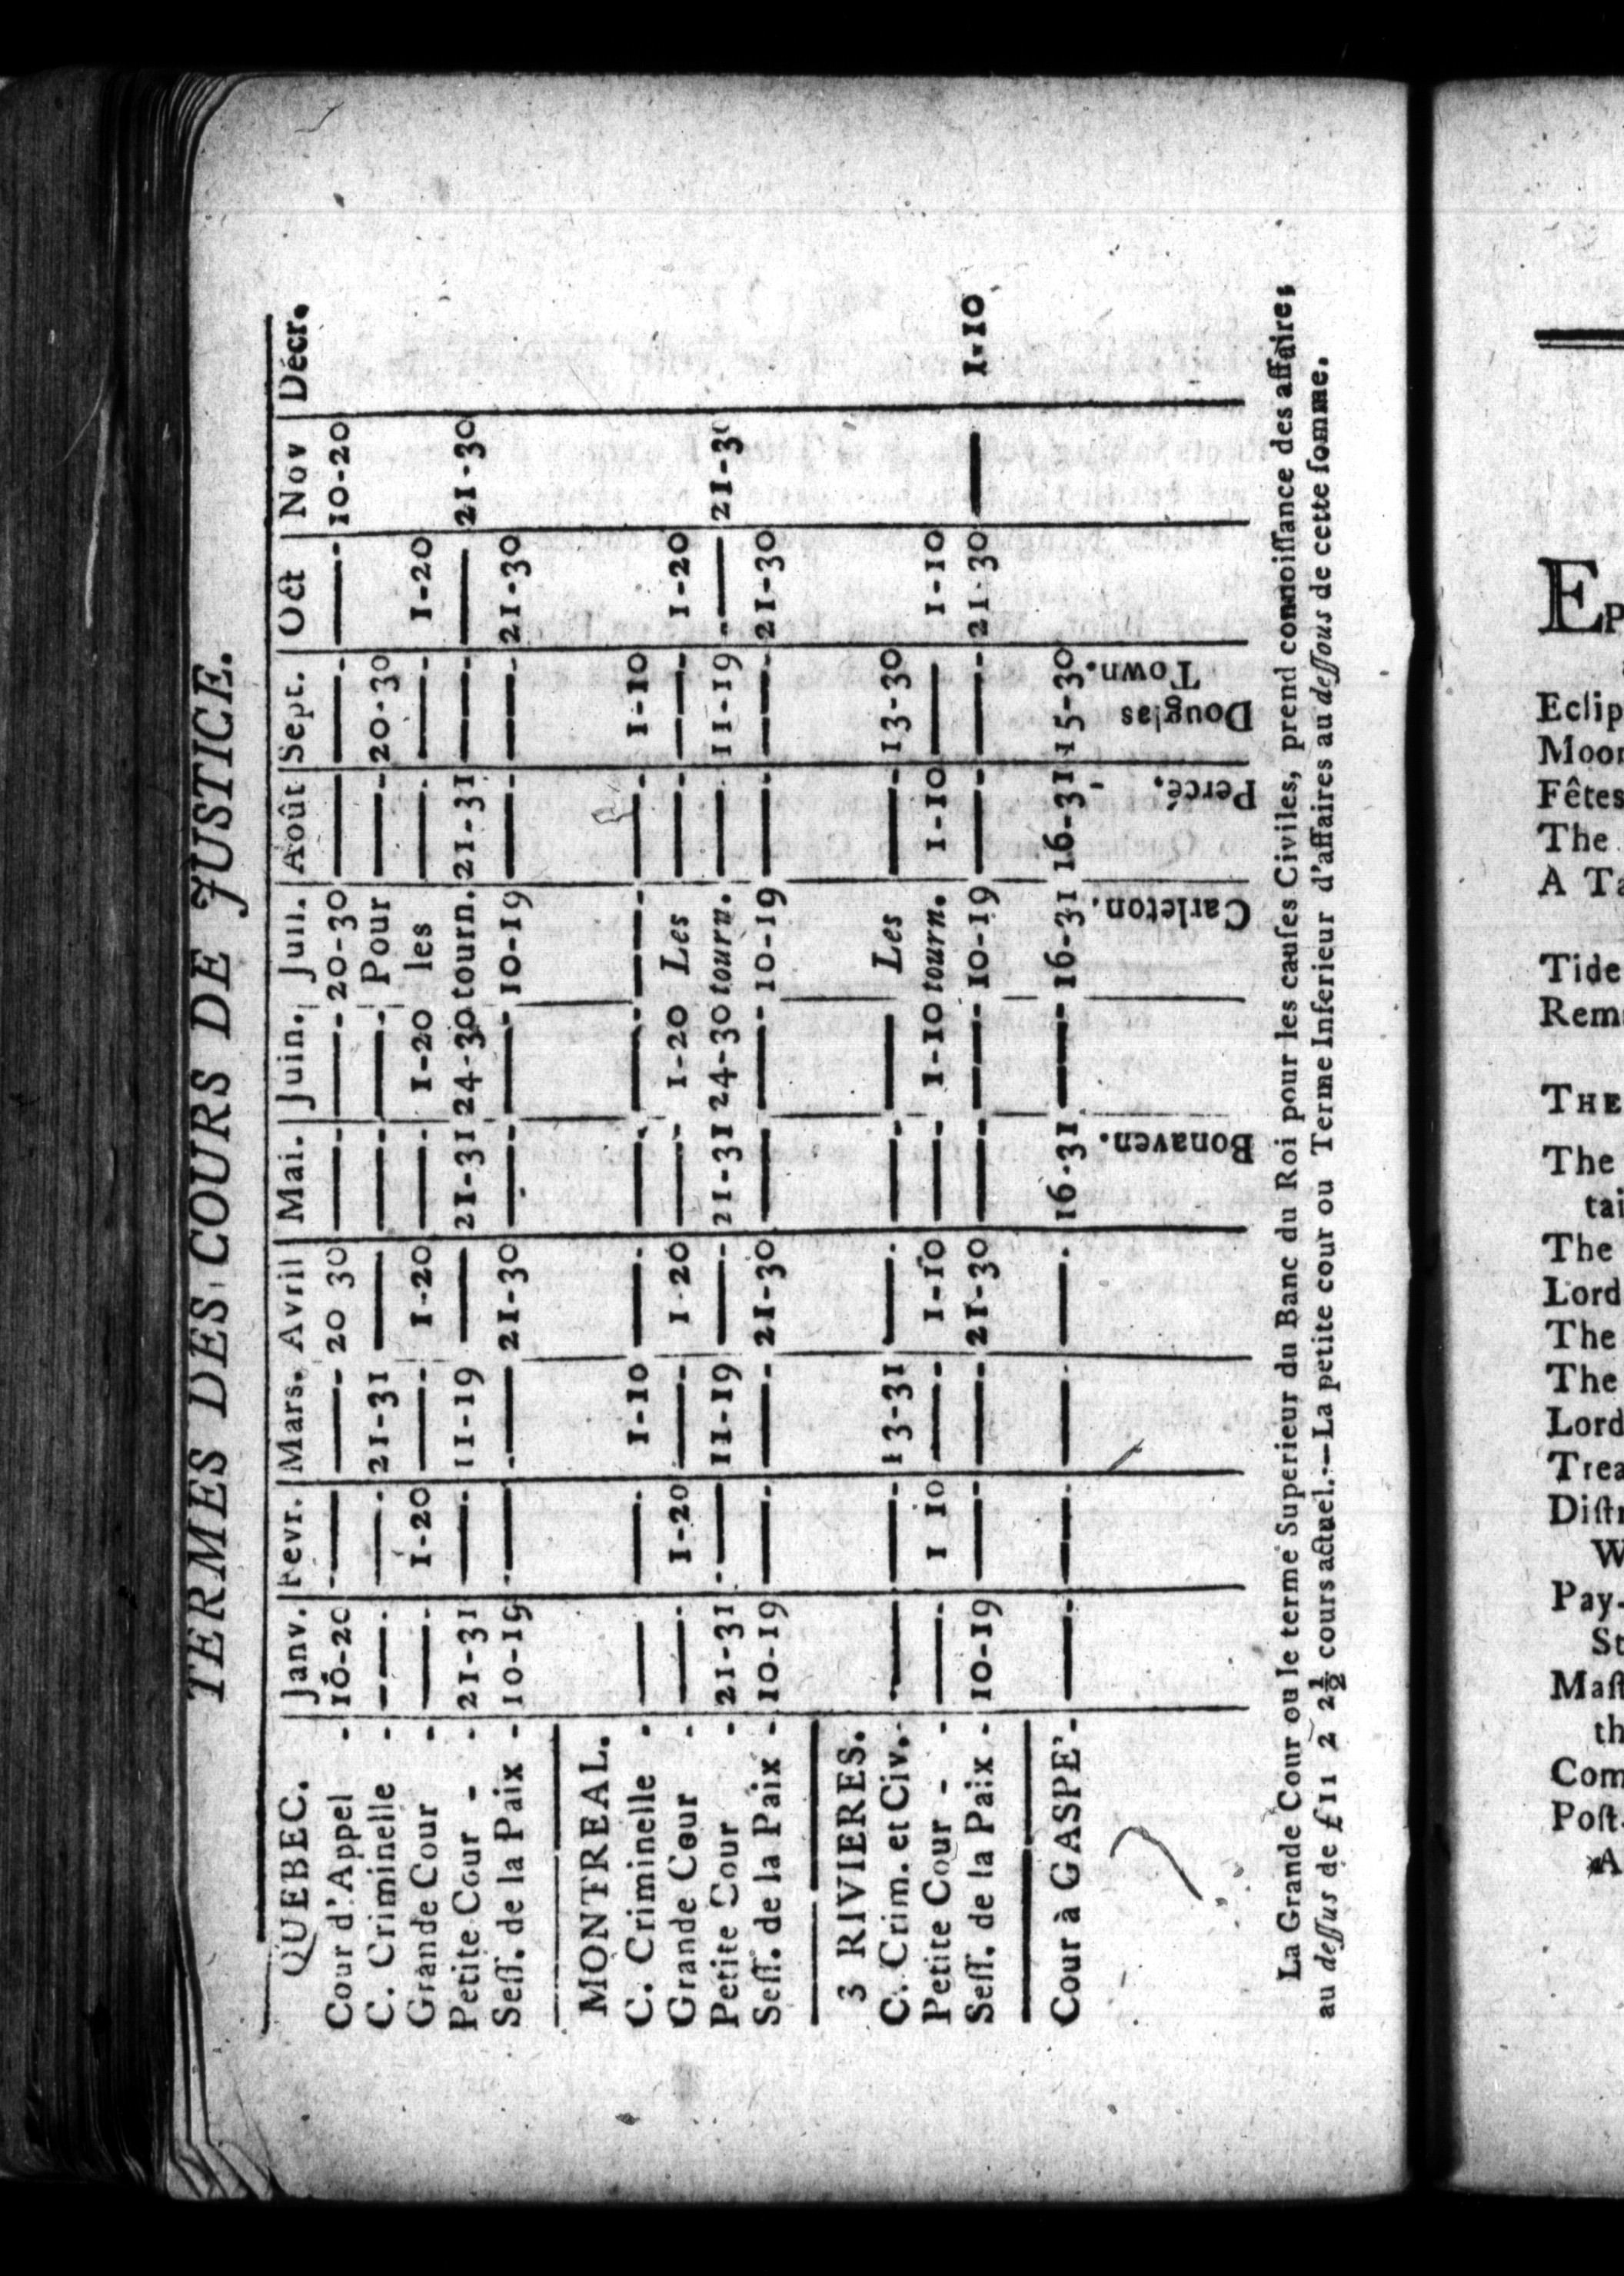 TERMES DES COURS DE JUSTICE.
QUEBEC. Janv. Fevr. Mars. Avril Mai. Juin. Juil. Août Sept. Oct Nov Décr.
Cour d'Appel - 10-20 —— —— 20 30 —— —— 20-30 —— —— —— 10-20
C. Criminelle - —— —— 21-31 —— —— —— Pour —— 20-30
Grande Cour - —— 1-20 —— 1-20 —— 1-20 les —— —— 1-20
Petite Cour - - 21-31 —— 11-19 —— 21-31 24-30 tourn. 21-31 —— —— 21-30
Seſſ. de la Paix - 10-19 —— —— 21-30 —— —— 10-19 —— —— 21-30
MONTREAL.
C. Criminelle - —— —— 1-10 —— —— —— —— —— 1-10
Grande Cour - —— 1-20 —— 1-20 —— 1-20 Les —— —— 1-20
Petite Cour - 21-31 —— 11-19 —— 21-31 24-30 tourn. —— 11-19 —— 21-30
Seſſ. de la Paix - 10-19 —— —— 21-30 —— —— 10-19 —— —— 21-30
3 RIVIERES.
C. Crim. et Civ. - —— —— 13-31 —— —— —— Les —— 13-30
Petite Cour - - —— 1 10 —— 1-10 —— 1-10 tourn. 1-10 —— 1-10
Seſſ. de la Paix - 10-19 —— —— 21-30 —— —— 10-19 —— —— 21-30 —— 1-10
Cour à GASPE'. - —— —— —— —— 16-31 —— 16-31 16-31 15-30
Bonaven. Carleton. Percé. Douglas
Town.
La Grande Cour ou le terme Superieur du Banc du Roi pour les cauſes Civiles, prend connoiſſance des affaires
au deſſus de £11 2 2½ cours actuel.—La petite cour ou Terme Inferieur d'affaires au deſſous de cette ſomme.
EP
Eclip
Moon
Fêtes
The
A Ta
Tide
Rem
THE
The
tai
The
Lord
The
The
Lord
Trea
Diſtr
W
Pay-
Su
Maſt
th
Com
Poſt-
A